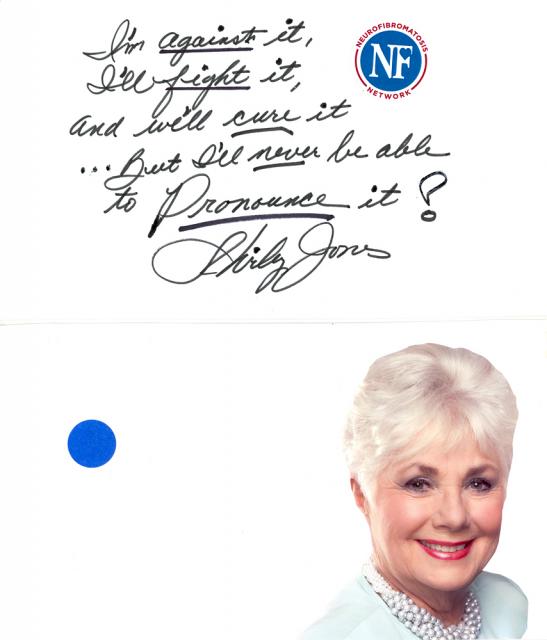 I'm against it,
I'll fight it,
and we'll cure it
...But I'll never be able
to Pronounce it?
Shirley Jones
NEUROFIBROMATOSIS
NF
NETWORK